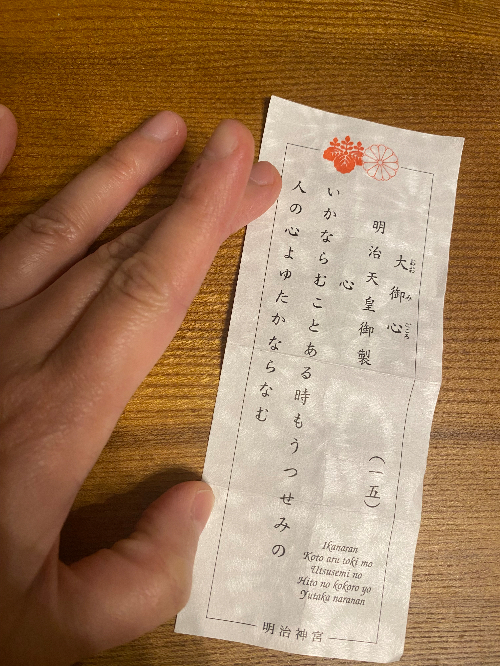 大御心
おおみごころ
明治天皇御製
(一五)
心
いかならむことある時もうつせみの
人の心よゆたかならなむ
Ikanaran
Koto aru toki mo
Utsusemi no
Hito no kokoro yo
Yutaka naranan
明治神宮